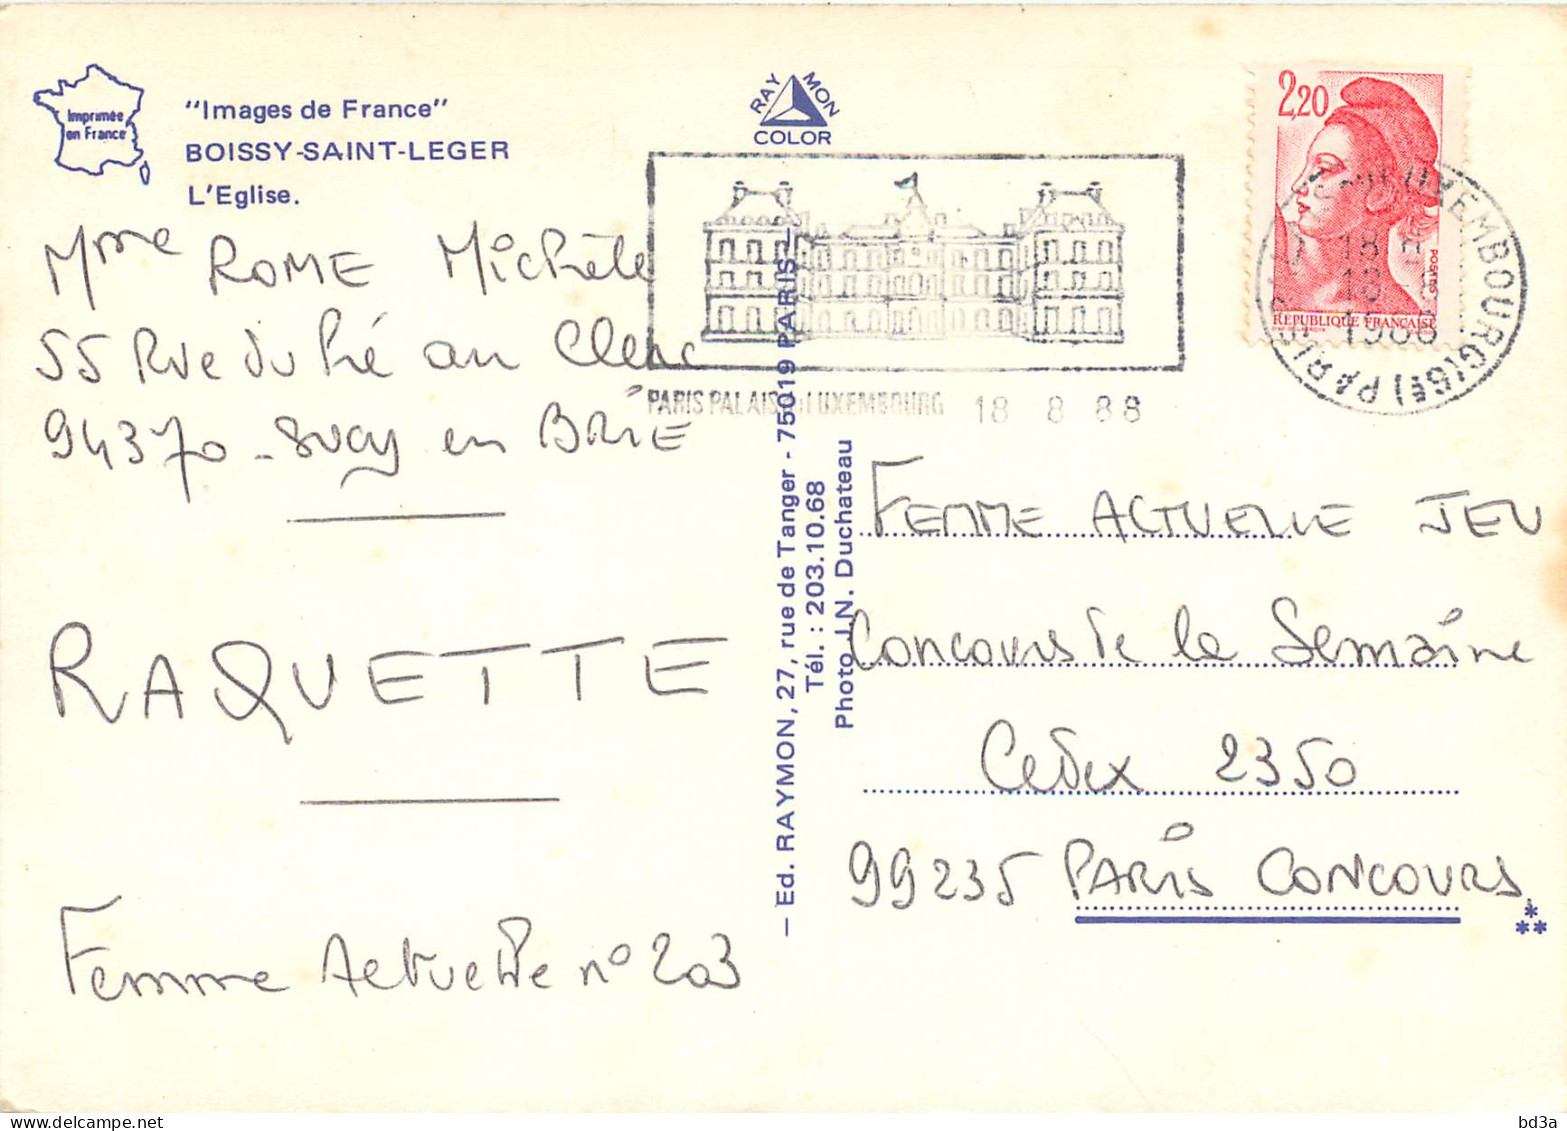 Imprimée
en France
"Images de France"
BOISSY-SAINT-LEGER
L'Eglise.
RAYMON
COLOR
2,20
POSTES
REPUBLIQUE FRANÇAISE
LUXEMBOURG (6E) PARIS
18 H
18
1988
PARIS PALAIS DU LUXEMBOURG 18 8 88
Mme ROME Michèle
55 Rue du Pré au Clerc
94370 - sucy en BRIE
RAQUETTE
Femme Actuelle n° 203
— Ed. RAYMON, 27, rue de Tanger - 75019 PARIS —
Tél. : 203.10.68
Photo J.N. Duchateau
FEMME ACTUELLE JEU
Concours de la Semaine
Cedex 2350
99235 PARIS CONCOURS
bd3a